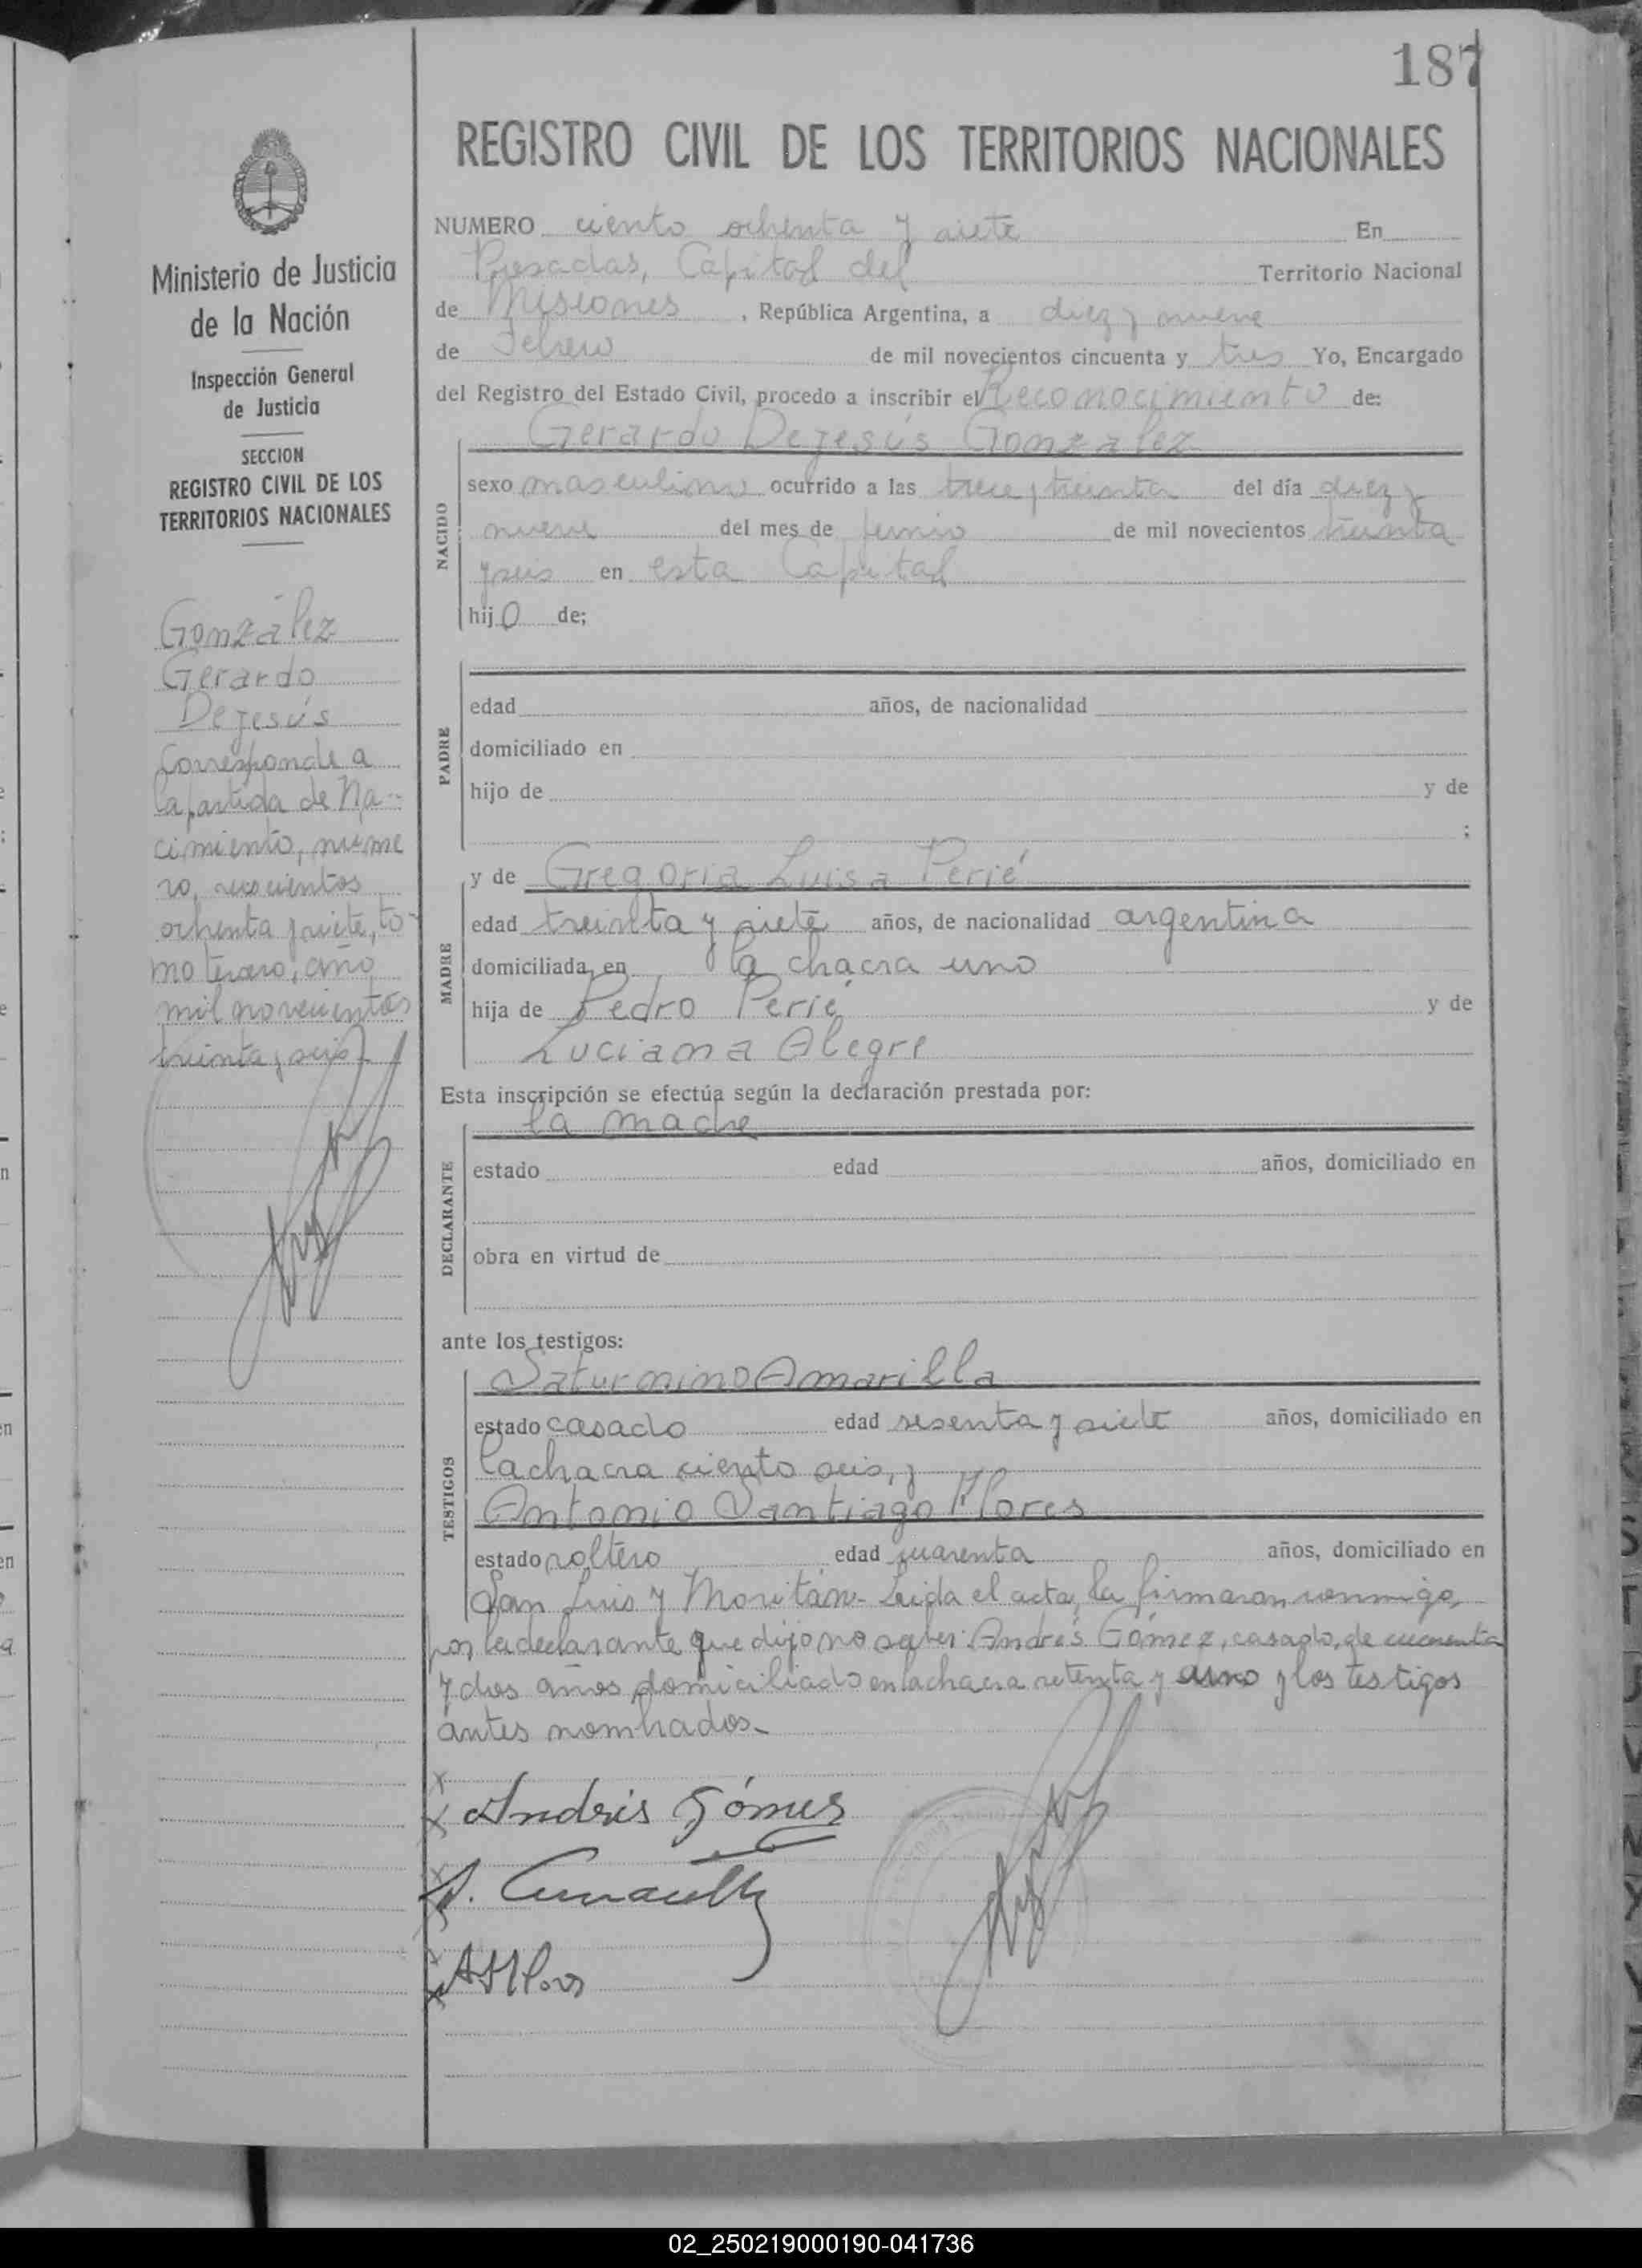 187
REGISTRO CIVIL DE LOS TERRITORIOS NACIONALES
Ministerio de Justicia
de la Nación
Inspección General
de Justicia
SECCION
REGISTRO CIVIL DE LOS
TERRITORIOS NACIONALES
González
Gerardo
Dejesús
Corresponde a
la partida de Na-
cimiento, núme
ro, seiscientos
ochenta y siete, to-
mo tercero, año
mil novecientos
treinta y seis
NUMERO ciento ochenta y siete En
Posadas, Capital del Territorio Nacional
de Misiones, República Argentina, a diez y nueve
de Febrero de mil novecientos cincuenta y tres Yo, Encargado
del Registro del Estado Civil, procedo a inscribir el Reconocimiento de:
Gerardo Dejesús González
NACIDO
sexo masculino ocurrido a las trece y treinta del día diez y
nueve del mes de Junio de mil novecientos treinta
y seis en esta Capital
hijo de;
PADRE
edad años, de nacionalidad
domiciliado en
hijo de y de
;
MADRE
y de Gregoria Luisa Perié
edad treinta y siete años, de nacionalidad argentina
domiciliada en la chacra uno
hija de Pedro Perié y de
Luciana Alegre
Esta inscripción se efectúa según la declaración prestada por:
la madre
DECLARANTE
estado edad años, domiciliado en
obra en virtud de
ante los testigos:
TESTIGOS
Saturnino Amarilla
estado casado edad sesenta y siete años, domiciliado en
la chacra ciento seis, y
Antonio Santiago Flores
estado soltero edad cuarenta años, domiciliado en
San Luis y Moritán- Leida el acta, la firmaron conmigo,
por la declarante que dijo no saber: Andrés Gómez, casado, de cuarenta
y dos años domiciliado en la chacra setenta y uno y los testigos
antes nombrados-
Andrés Gómes
S. Amarilla
ASFlores
02_250219000190-041736